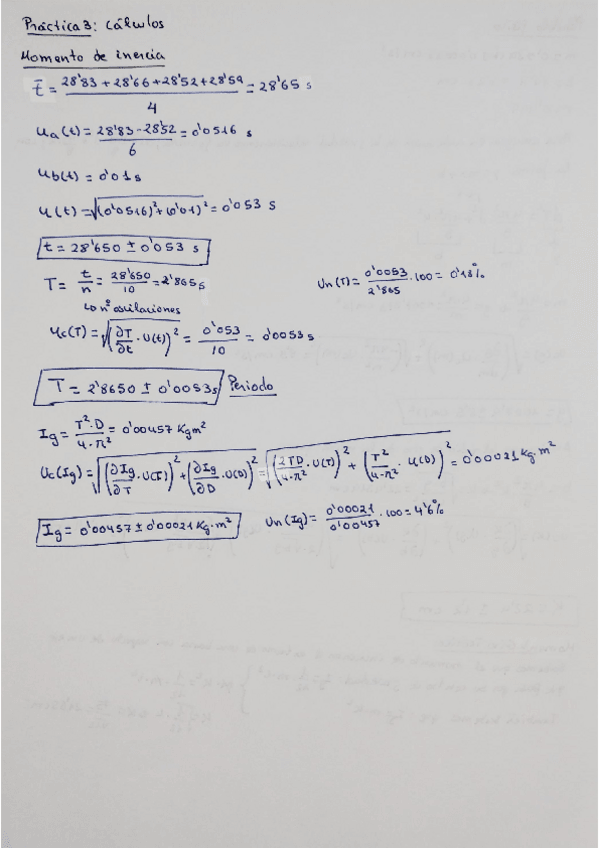 Práctica 3: Cálculos
Momento de inercia
t̄ = (28'83 + 28'66 + 28'52 + 28'59)/4 = 28'65 s
ua(t) = (28'83 - 28'52)/6 = 0'0516 s
ub(t) = 0'01 s
u(t) = √((0'0516)² + (0'01)²) = 0'053 s
t = 28'650 ± 0'053 s
T = t/n = 28'650/10 = 2'865 s
Un(T) = 0'0053/2'865 · 100 = 0'18%
↳ nº oscilaciones
uc(T) = √((∂T/∂t · u(t))²) = 0'053/10 = 0'0053 s
T = 2'8650 ± 0'0053 s Periodo
Ig = T²·D/4·π² = 0'00457 Kgm²
Uc(Ig) = √((∂Ig/∂T · U(T))² + (∂Ig/∂D · U(D))²) = √((2TD/4·π² · U(T))² + (T²/4·π² · U(D))²) = 0'00021 Kg·m²
Ig = 0'00457 ± 0'00021 Kg·m²
Un(Ig) = 0'00021/0'00457 · 100 = 4'6%